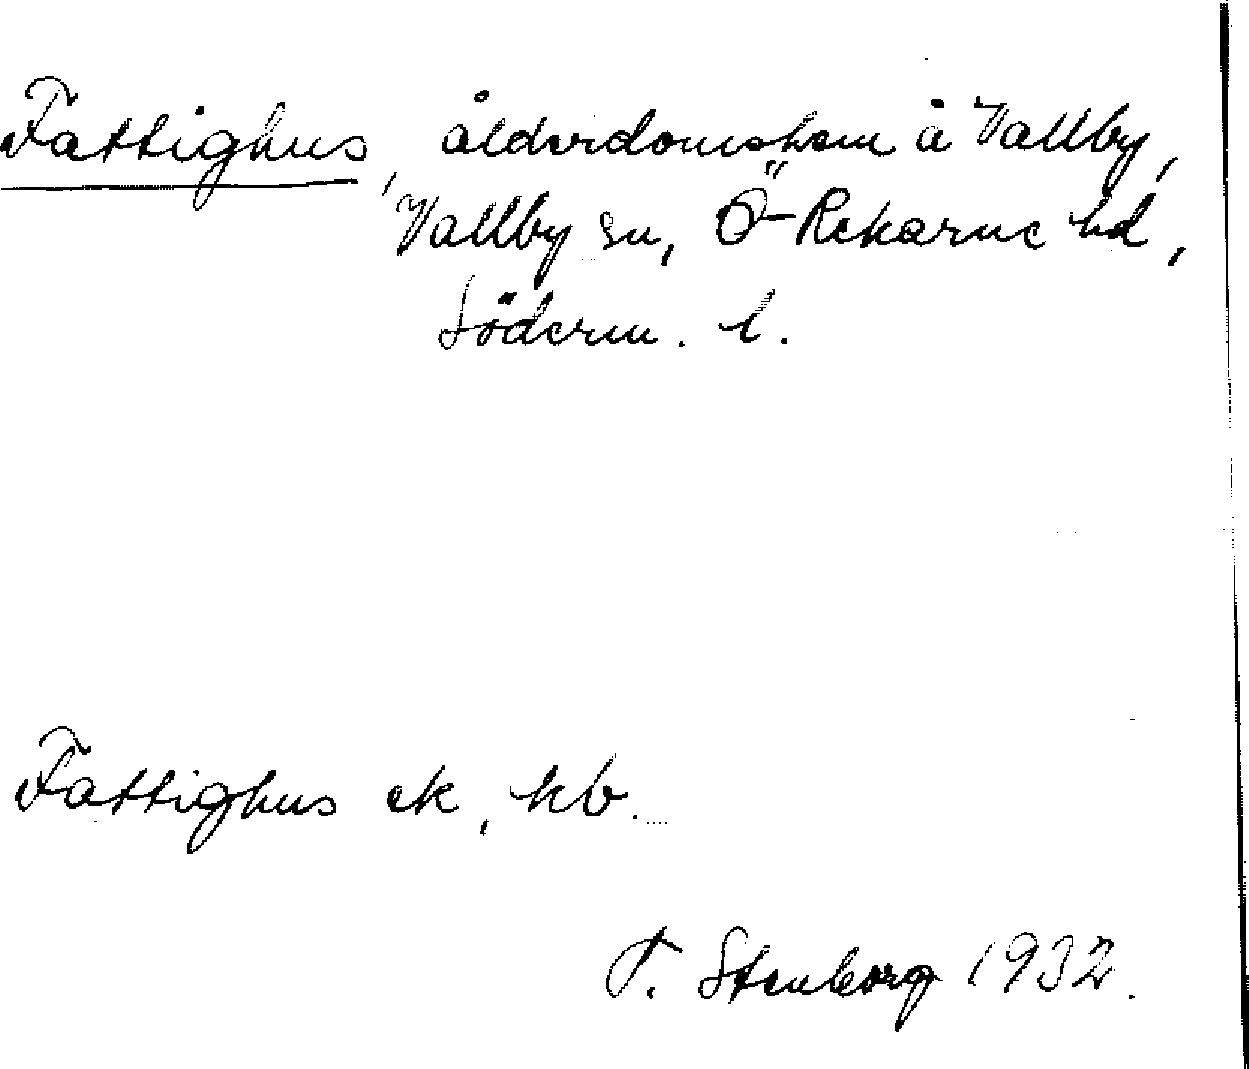 Fattighus, ålderdomshem å Vallby,
Vallby sn, Ö-Rekarne hd,
Söderm. l.
Fattighus ek, kb.
T. Stenborg 1932.